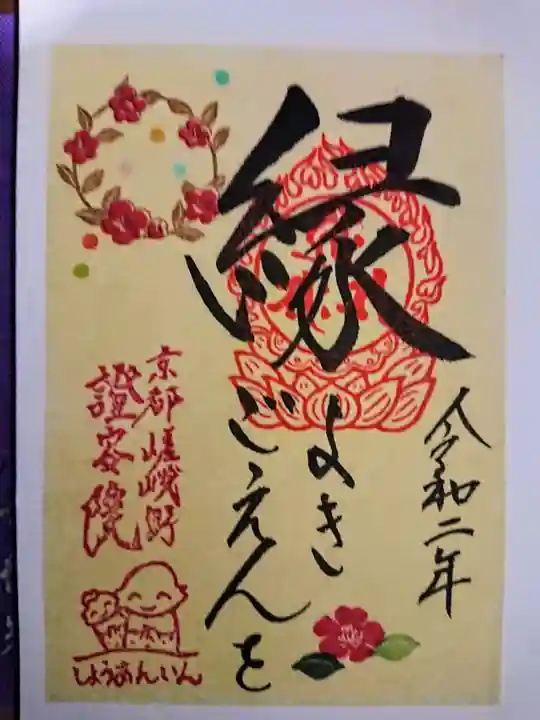 縁
よき
ごえんを
令和二年
京都嵯峨野
證安院
しょうあんいん